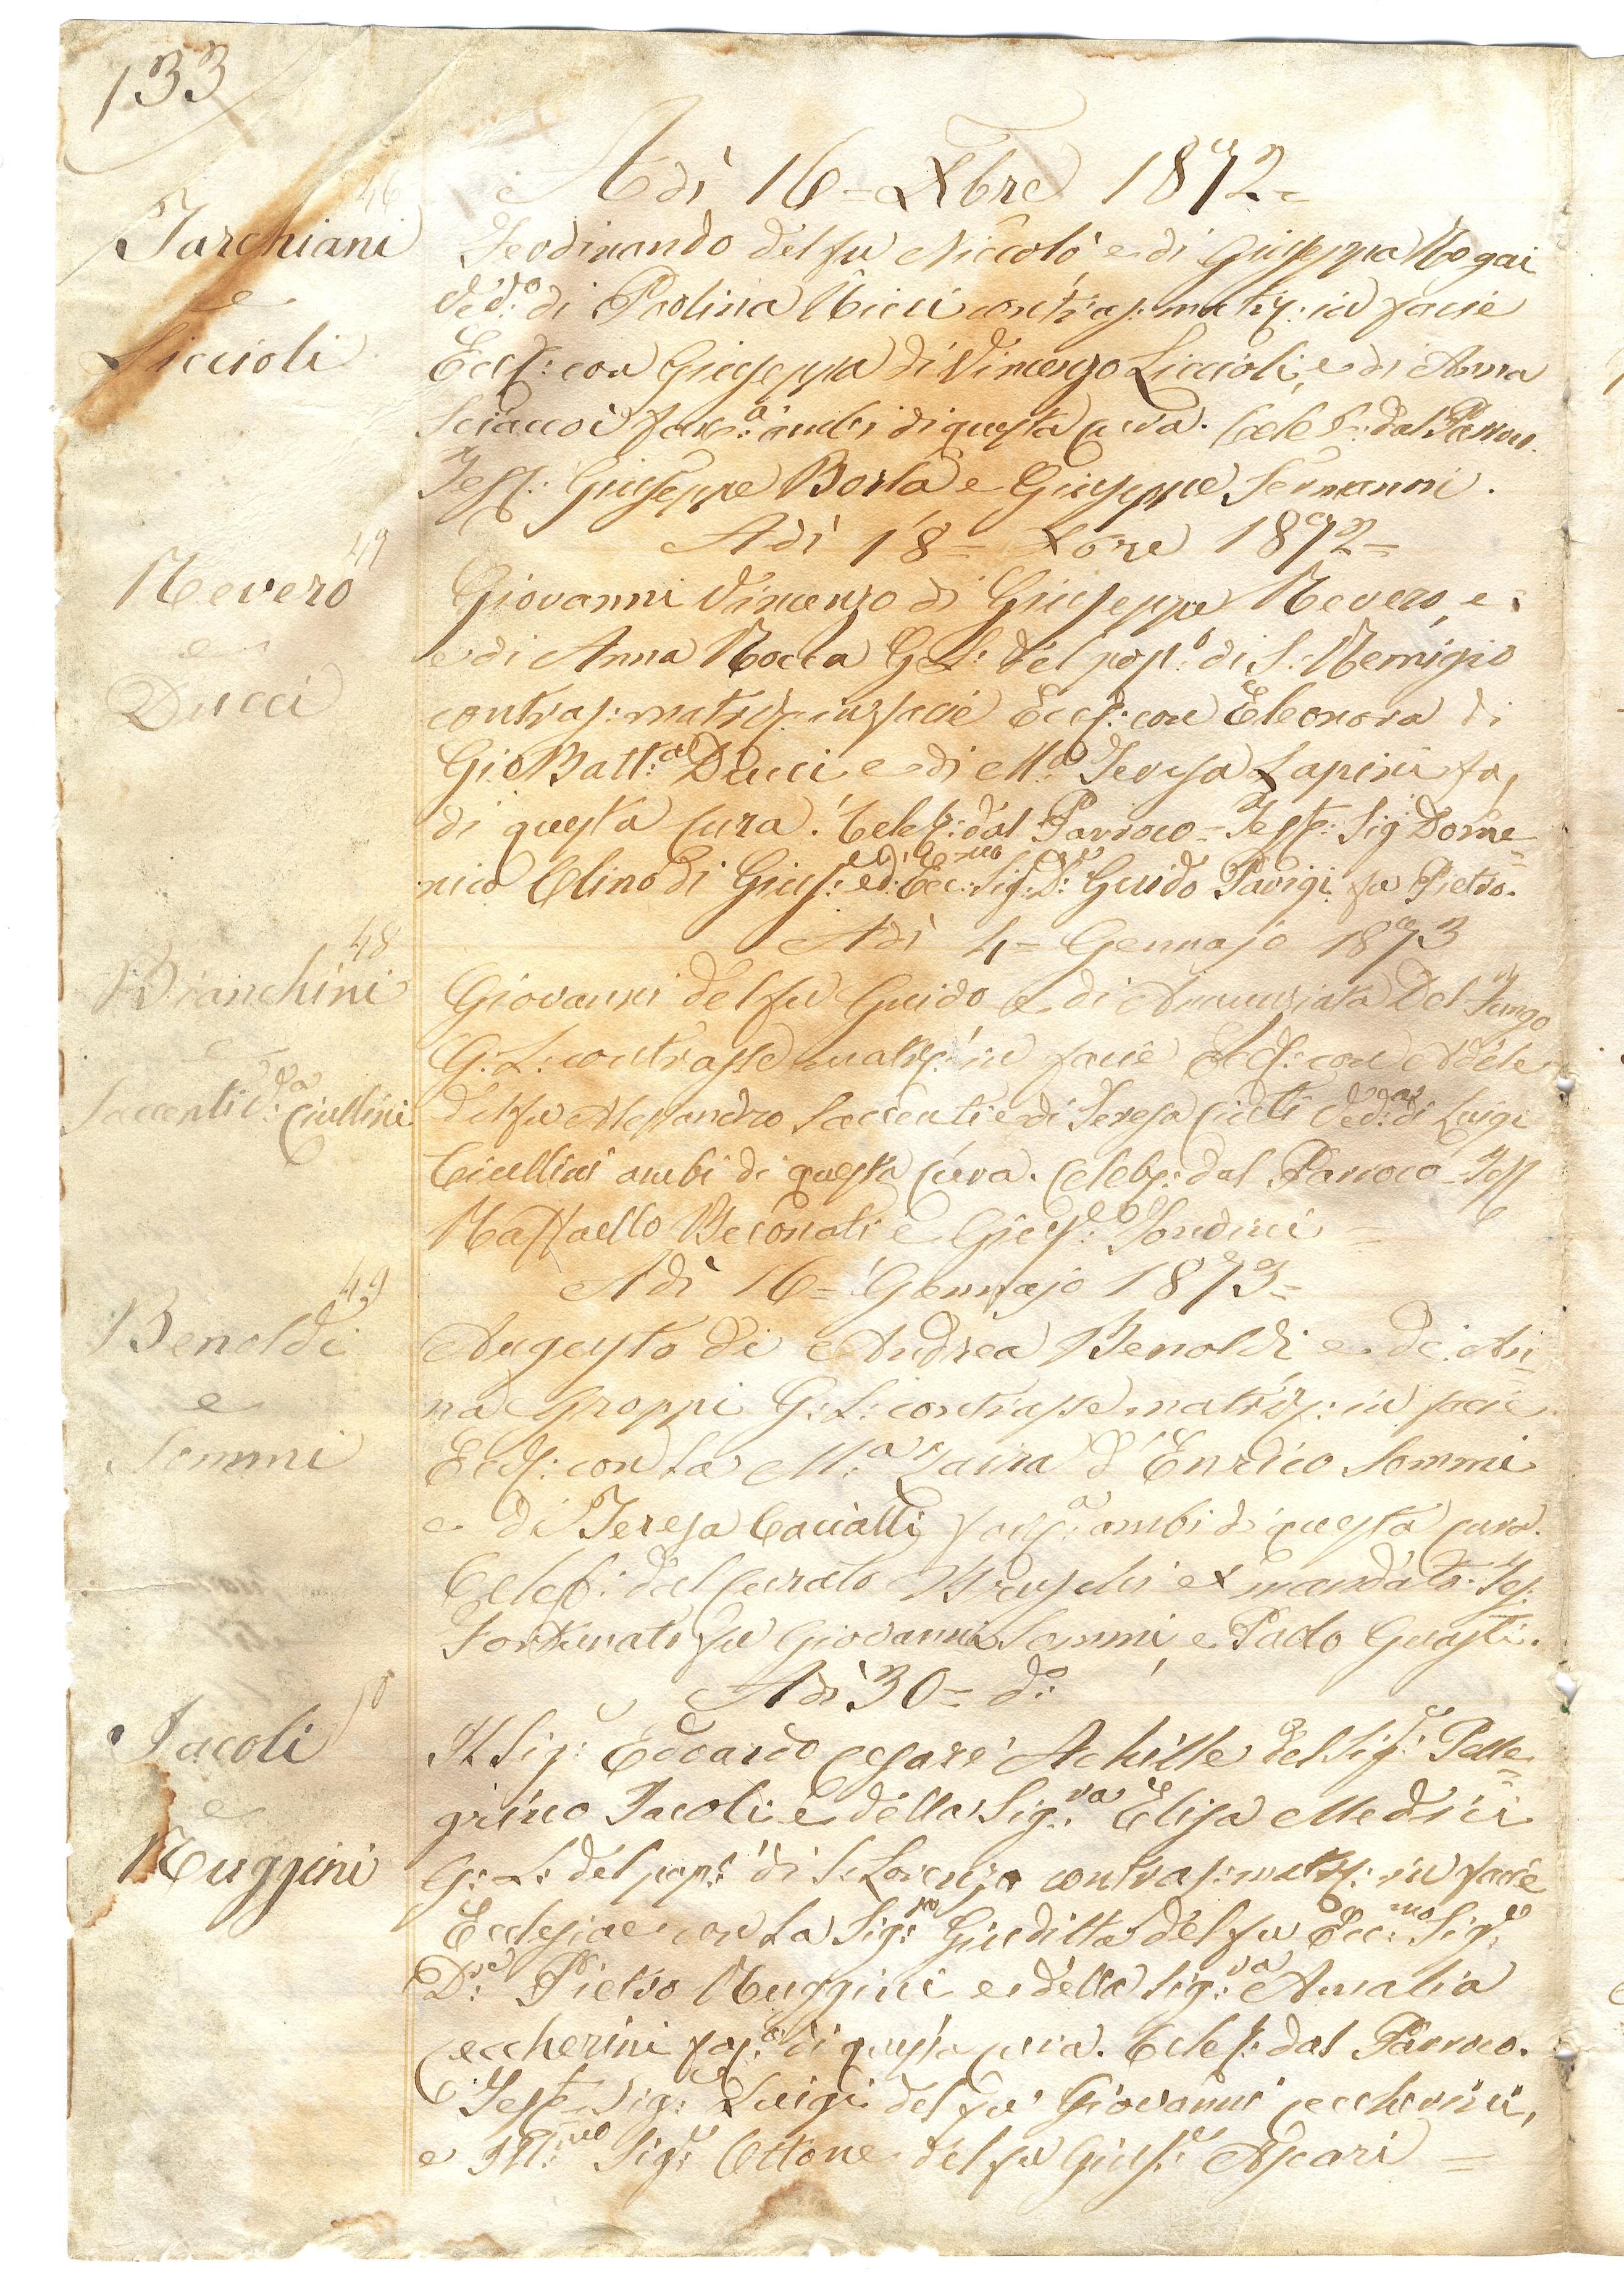 133
Adì 16 = Xbre 1872 =
46
Tarchiani
e
Liccioli
Ferdinando del fu Niccolò e di Giuseppa Nogai
Ved:o di Paolina Ricci contras: matr: in facie
Eccl: con Giuseppa di Vincenzo Liccioli, e di Anna
fanc:a ambi di questa Cura. Celeb: dal Parroco.
Test: Giuseppe Borla e Giuseppe Sermanni.
Adì 18 = Xbre 1872 =
47
Revero
e
Ducci
Giovanni Vincenzo di Giuseppe Revero, e
e di Anna Rocca G: L: del pop:o di S: Remigio
contras: matr: in facie Eccl: con Eleonora di
Gio Batt:a Ducci e di M:a Teresa Lapini fa,
di questa Cura. Celeb: dal Parroco = Test: Sig Dome=
nico Clino di Gius:e ed Ecc:mo Sig:e D:re Guido Parigi fu Pietro.
Adì 4 = Gennajo 1873
48
Bianchini
e
Saccenti V:da Ciullini
Giovanni del fu Guido e di Annunziata Del Fungo
G: L: contrasse matr: in facie Eccl: con Adele
del fu Alessandro Saccenti e di Teresa Ciuti Ved: di Luigi
Ciullini ambi di questa Cura. Celeb: dal Parroco = Tess
Raffaello Beconati e Gius:e Sondini =
Adì 16 = Gennajo 1873 =
49
Benoldi
e
Sommi
Augusto di Andrea Benoldi e di An=
na Groppi G: L: contrasse matr: in facie
Eccl: con la M:a Zaira d'Enrico Sommi
e di Teresa Cacialli fanc:a ambi di questa cura.
Celeb: dal Curato Bruschi ex mandato. Tes:
Fortunato fu Giovanni Sommi, e Paolo Guasti.
Adì 30 = d:o
50
Jacoli
e
Ruggini
Il Sig:e Edoardo Cesare Achille del Sig:e Pelle=
grino Jacoli e della Sig:ra Elisa Medici
G: L: del pop:o di S: Lorenzo contras: matr: in facie
Ecclesiae con la Sig:ra Giuditta del fu Ecc:mo Sig:e
D:re Pietro Ruggini e della Sig:ra Amalia
Ceccherini fa:a di questa cura. Celeb: dal Parroco.
Test: Sig:e Luigi del fu Giovanni Ceccherini,
e Ill:mo Sig:e Ottone del fu Gius:e Ascari =